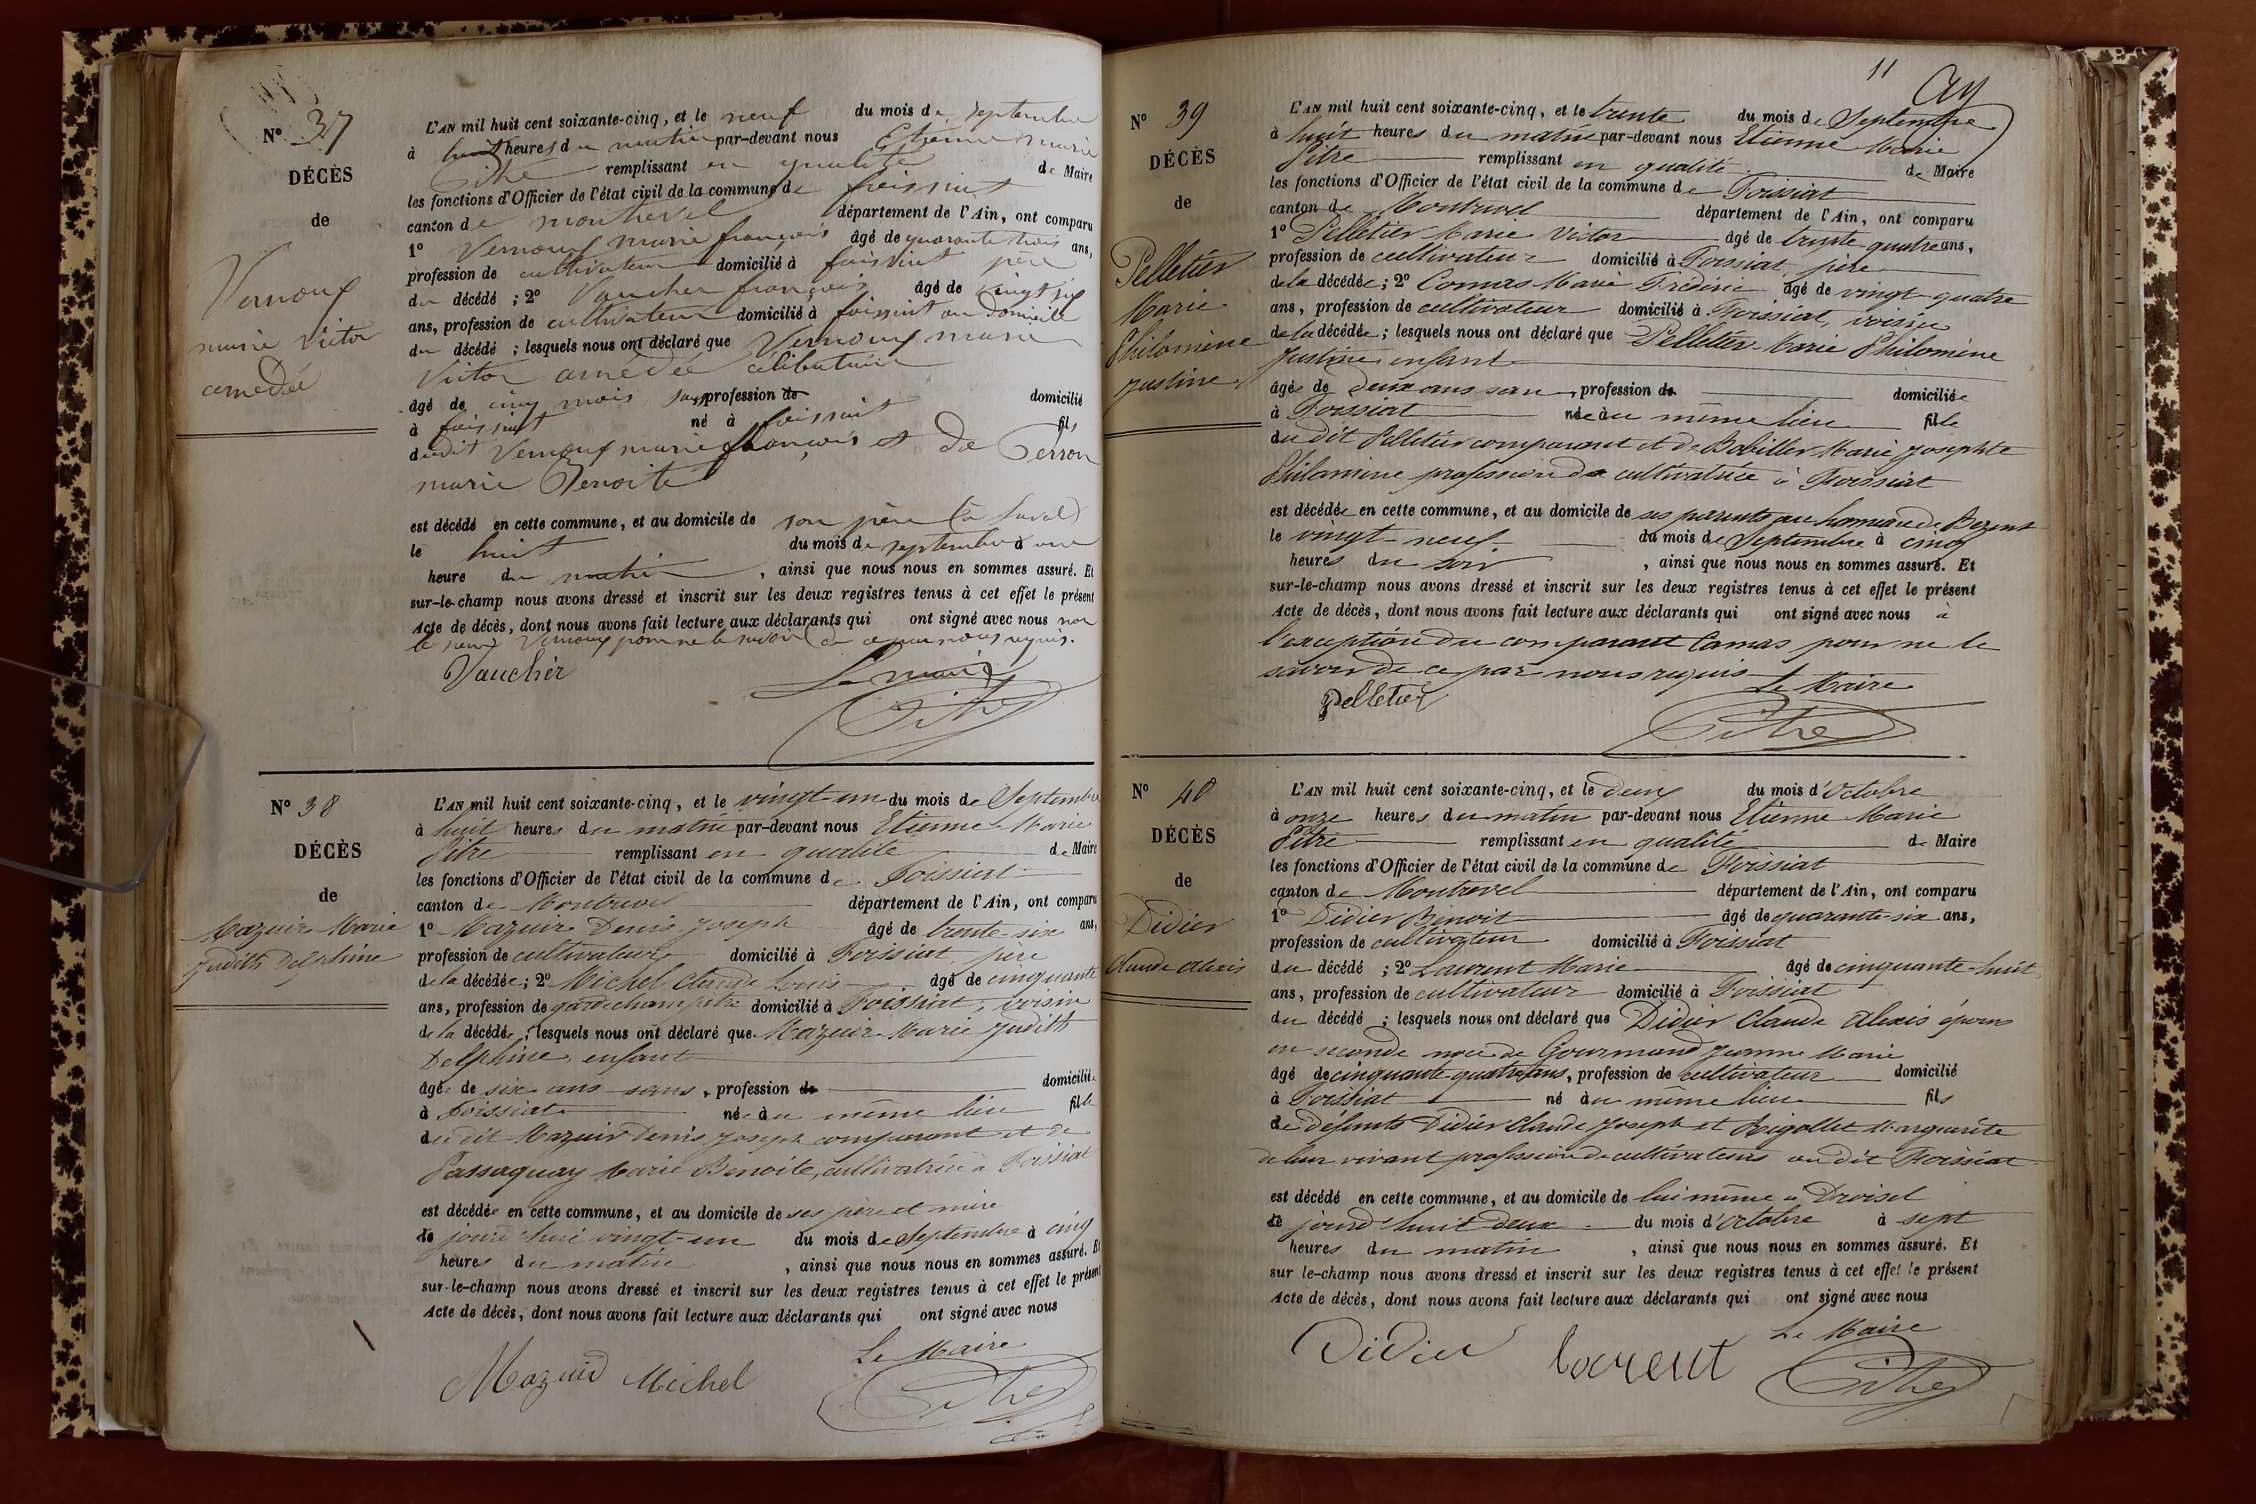 N° 37
DÉCÈS
de
Vernoux
marie victor
amédée
L'AN mil huit cent soixante-cinq, et le neuf du mois de septembre
à huit heures du matin par-devant nous Etienne marie
Pitre remplissant en qualité de Maire
les fonctions d'Officier de l'état civil de la commune de foissiat
canton de montrevel département de l'Ain, ont comparu
1° Vernoux marie françois âgé de quarante trois ans,
profession de cultivateur domicilié à foissiat père
du décédé ; 2° Vaucher françois âgé de vingt six
ans, profession de cultivateur domicilié à foissiat au domicile
du décédé ; lesquels nous ont déclaré que Vernoux marie
Victor amédée célibataire
âgé de cinq mois sans profession de domicilié
à foissiat né à foissiat fils
dudit Vernoux marie françois et de Perron
marie Benoite
est décédé en cette commune, et au domicile de son père (à
le huit du mois de septembre à une
heure du matin, ainsi que nous nous en sommes assuré. Et
sur-le-champ nous avons dressé et inscrit sur les deux registres tenus à cet effet le présent
Acte de décès, dont nous avons fait lecture aux déclarants qui ont signé avec nous non
le sieur Vernoux pour ne le savoir de ce par nous requis.
Vaucher Le maire
Pitre
N° 38
DÉCÈS
de
Mazuir Marie
Judith Delphine
L'AN mil huit cent soixante-cinq, et le vingt-un du mois de Septembre
à huit heures du matin par-devant nous Etienne Marie
Pitre remplissant en qualité de Maire
les fonctions d'Officier de l'état civil de la commune de Foissiat
canton de Montrevel département de l'Ain, ont comparu
1° Mazuir Denis Joseph âgé de trente six ans,
profession de cultivateur domicilié à Foissiat, père
de la décédée ; 2° Michel Claude Louis âgé de cinquante
ans, profession de garde champêtre domicilié à Foissiat, voisin
de la décédée ; lesquels nous ont déclaré que Mazuir Marie Judith
Delphine enfant
âgée de six ans sans, profession de domiciliée
à Foissiat née au même lieu fille
du dit Mazuir Denis Joseph comparant et de
Passaquay Marie Benoite, cultivatrice à Foissiat
est décédée en cette commune, et au domicile de ses père et mère
le jourd'hui vingt-un du mois de Septembre à cinq
heures du matin, ainsi que nous nous en sommes assuré. Et
sur-le-champ nous avons dressé et inscrit sur les deux registres tenus à cet effet le présent
Acte de décès, dont nous avons fait lecture aux déclarants qui ont signé avec nous
Le Maire
Mazuir Michel
Pitre
11
N° 39
DÉCÈS
de
Pelletier
Marie
Philomène
Justine
L'AN mil huit cent soixante-cinq, et le trente du mois de Septembre
à huit heures du matin par-devant nous Etienne Marie
Pitre remplissant en qualité de Maire
les fonctions d'Officier de l'état civil de la commune de Foissiat
canton de Montrevel département de l'Ain, ont comparu
1° Pelletier Marie Victor âgé de trente-quatre ans,
profession de cultivateur domicilié à Foissiat, père
de la décédée ; 2° Comas Marie Fréderic âgé de vingt-quatre
ans, profession de cultivateur domicilié à Foissiat, voisin
de la décédée ; lesquels nous ont déclaré que Pelletier Marie Philomène
Justine enfant
âgée de deux ans sans, profession de domiciliée
à Foissiat née au même lieu fille
du dit Pelletier comparant et de Bobillier Marie Josephte
Philomine profession de cultivatrice à Foissiat
est décédée en cette commune, et au domicile de ses parents au hameau de
le vingt-neuf du mois de Septembre à cinq
heures du soir, ainsi que nous nous en sommes assuré. Et
sur-le-champ nous avons dressé et inscrit sur les deux registres tenus à cet effet le présent
Acte de décès, dont nous avons fait lecture aux déclarants qui ont signé avec nous à
l'exception du comparant Comas pour ne le
savoir de ce par nous requis
Le Maire
Pelletier
Pitre
N° 40
DÉCÈS
de
Didier
Claude Alexis
L'AN mil huit cent soixante-cinq, et le deux du mois d'Octobre
à onze heures du matin par-devant nous Etienne Marie
Pitre remplissant en qualité de Maire
les fonctions d'Officier de l'état civil de la commune de Foissiat
canton de Montrevel département de l'Ain, ont comparu
1° Didier Benoit âgé de quarante-six ans,
profession de cultivateur domicilié à Foissiat
du décédé ; 2° Laurent Marie âgé de cinquante-huit
ans, profession de cultivateur domicilié à Foissiat
du décédé ; lesquels nous ont déclaré que Didier Claude Alexis époux
en seconde noce de Gourmand Jeanne Marie
âgé de cinquante-quatre ans, profession de cultivateur domicilié
à Foissiat né au même lieu fils
de défunts Didier Claude Joseph et Rigollet Marguerite
de leur vivant profession de cultivateurs au dit Foissiat
est décédé en cette commune, et au domicile de lui même à Droisel
le jourd'huit deux du mois d'Octobre à sept
heures du matin, ainsi que nous nous en sommes assuré. Et
sur le-champ nous avons dressé et inscrit sur les deux registres tenus à cet effet le présent
Acte de décès, dont nous avons fait lecture aux déclarants qui ont signé avec nous
Le Maire
Didier Laurent
Pitre